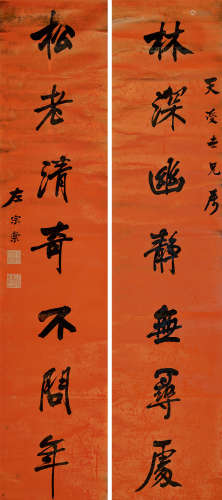 天浚世兄屬
林深幽靜無尋處
松老清奇不問年
左宗棠